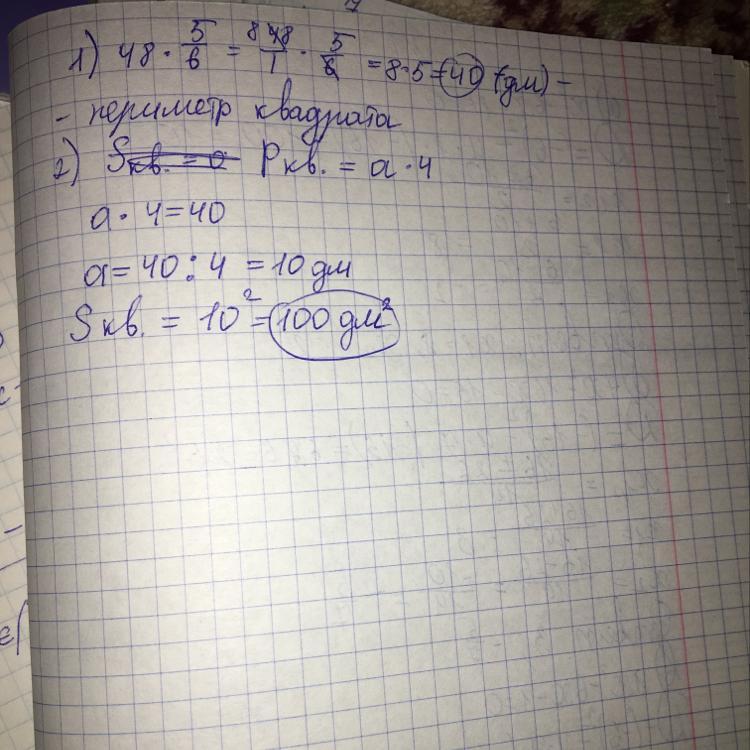 1) 48 · 5/6 = 48/1 · 5/6 = 8·5=40 (дм) –
- периметр квадрата
2) Sкв. = a Pкв. = a · 4
a · 4=40
a= 40 : 4 = 10 дм
Sкв. = 10² = 100 дм²